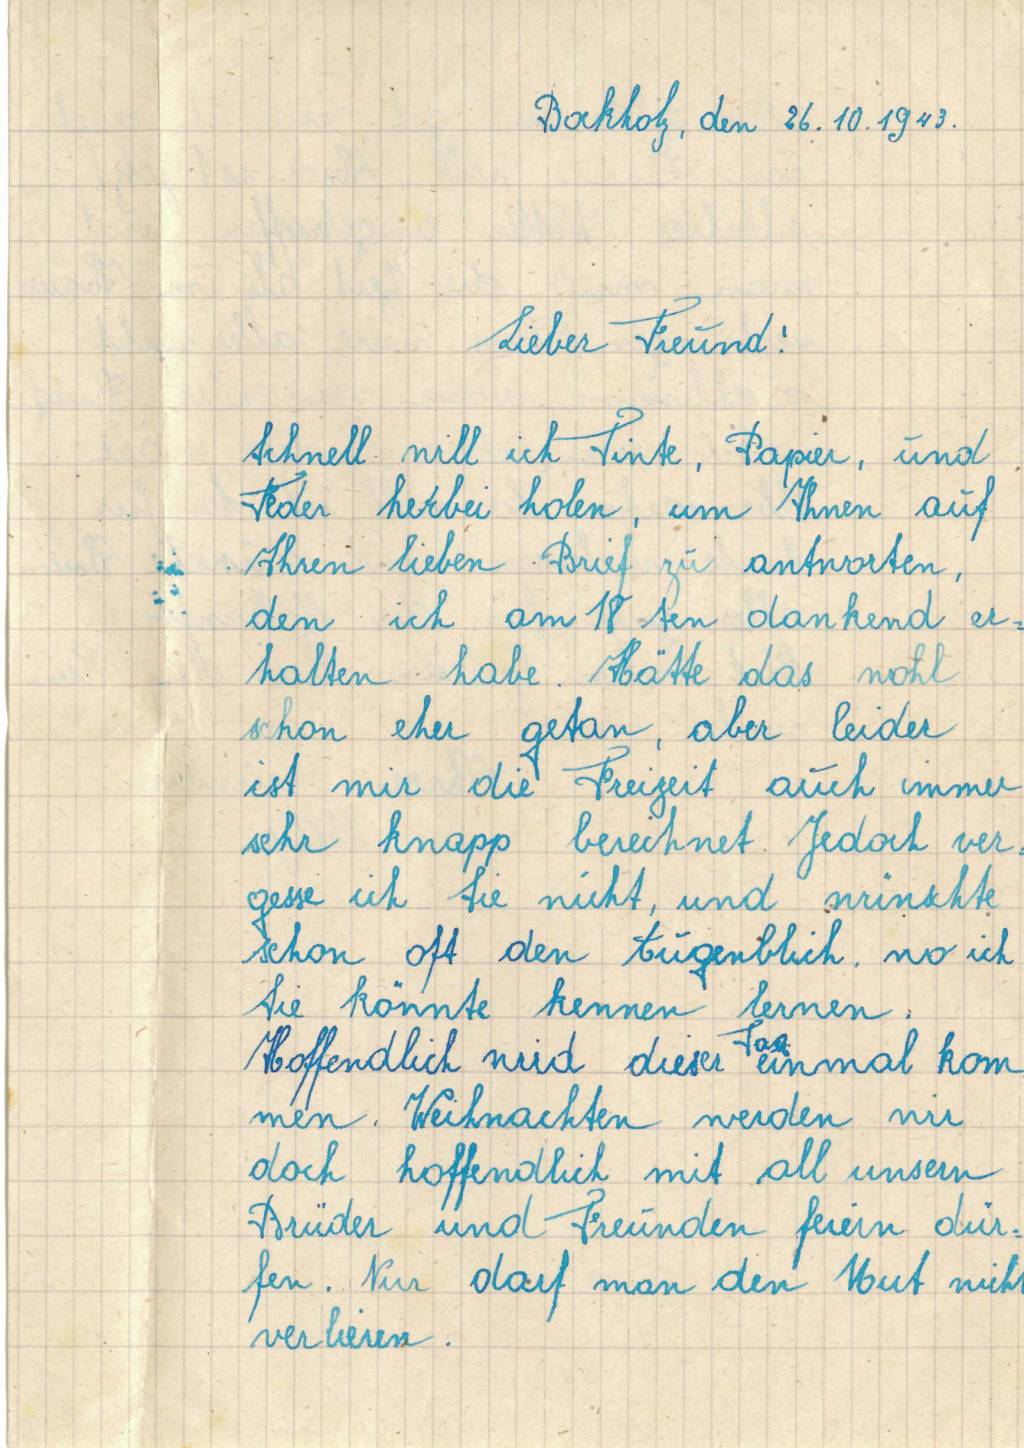 Bockholz, den 26.10.1943.
Lieber Freund!
Schnell will ich Tinte, Papier, und
Feder herbei holen, um Ihnen auf
Ihren lieben Brief zu antworten,
den ich am 18 ten dankend er=
halten habe. Hätte das wohl
schon eher getan, aber leider
ist mir die Freizeit auch immer
sehr knapp berechnet. Jedoch ver=
gesse ich Sie nicht, und wünschte
schon oft den Augenblich, wo ich
Sie könnte kennen lernen.
Hoffendlich wird dieser Tag einmal kom
men. Weihnachten werden wir
doch hoffendlich mit all unsern
Brüder und Freunden feiern dür=
fen. Nur darf man den Mut nicht
verlieren.